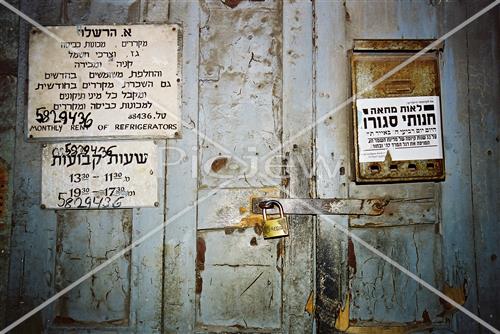 א. הרשלו
מקררים, מכונות כביסה
גז, וצרכי חשמל
קניה ומכירה
והחלפת, משומשים בחדשים
גם השכרת, מקררים בחודשית,
ומקבל כל מיני תיקונים
למכונות, כביסה ומקררים
5829436
טל. 88436
MONTHLY RENT OF REFRIGERATORS
5829436
שעות קבועות
13³⁰ - 11³⁰
19³⁰ - 17³⁰
5829436
לאות מחאה
חנותי סגורה
Picjew